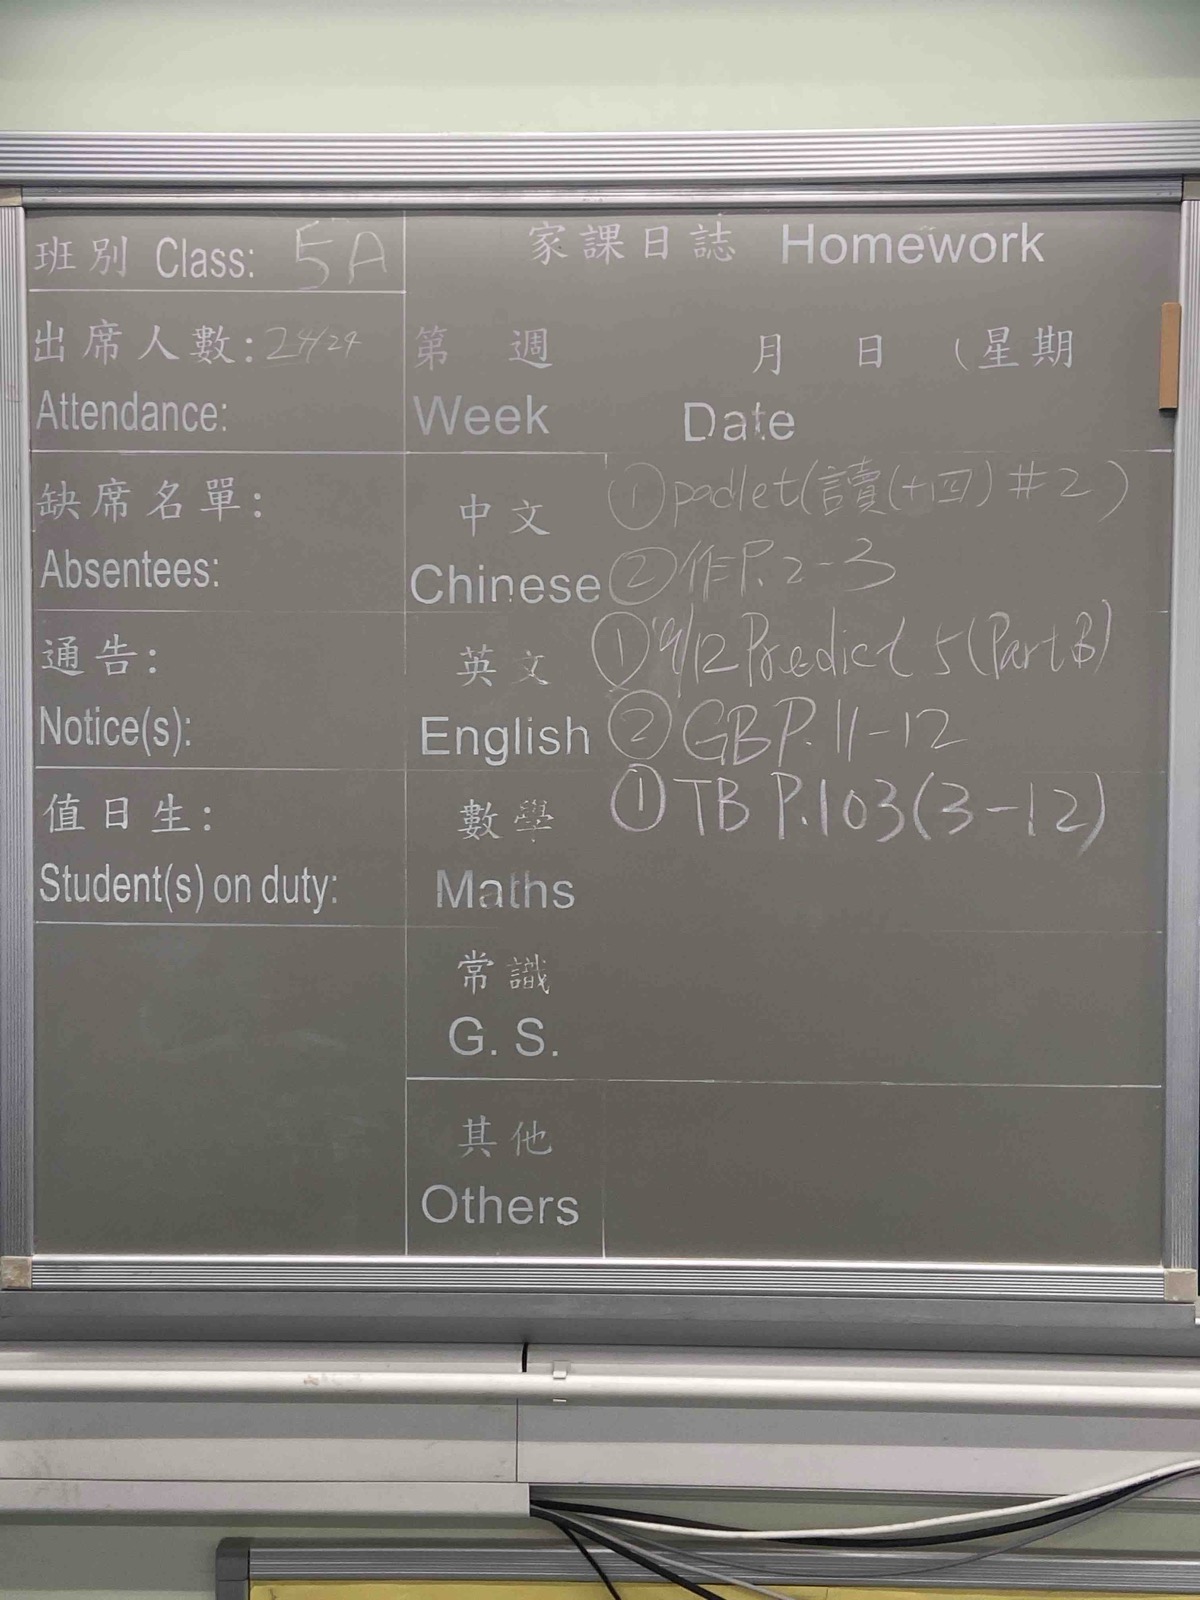 班別 Class: 5A
出席人數: 24/24
Attendance:
缺席名單:
Absentees:
通告:
Notice(s):
值日生:
Student(s) on duty:
家課日誌 Homework
第 週 月 日 (星期
Week Date
中文 ① padlet(讀(十四) #2)
Chinese ② 作P.2-3
英文 ① 9/12 Predict 5 (Part B)
English ② GB P.11-12
數學 ① TB P.103(3-12)
Maths
常識
G. S.
其他
Others